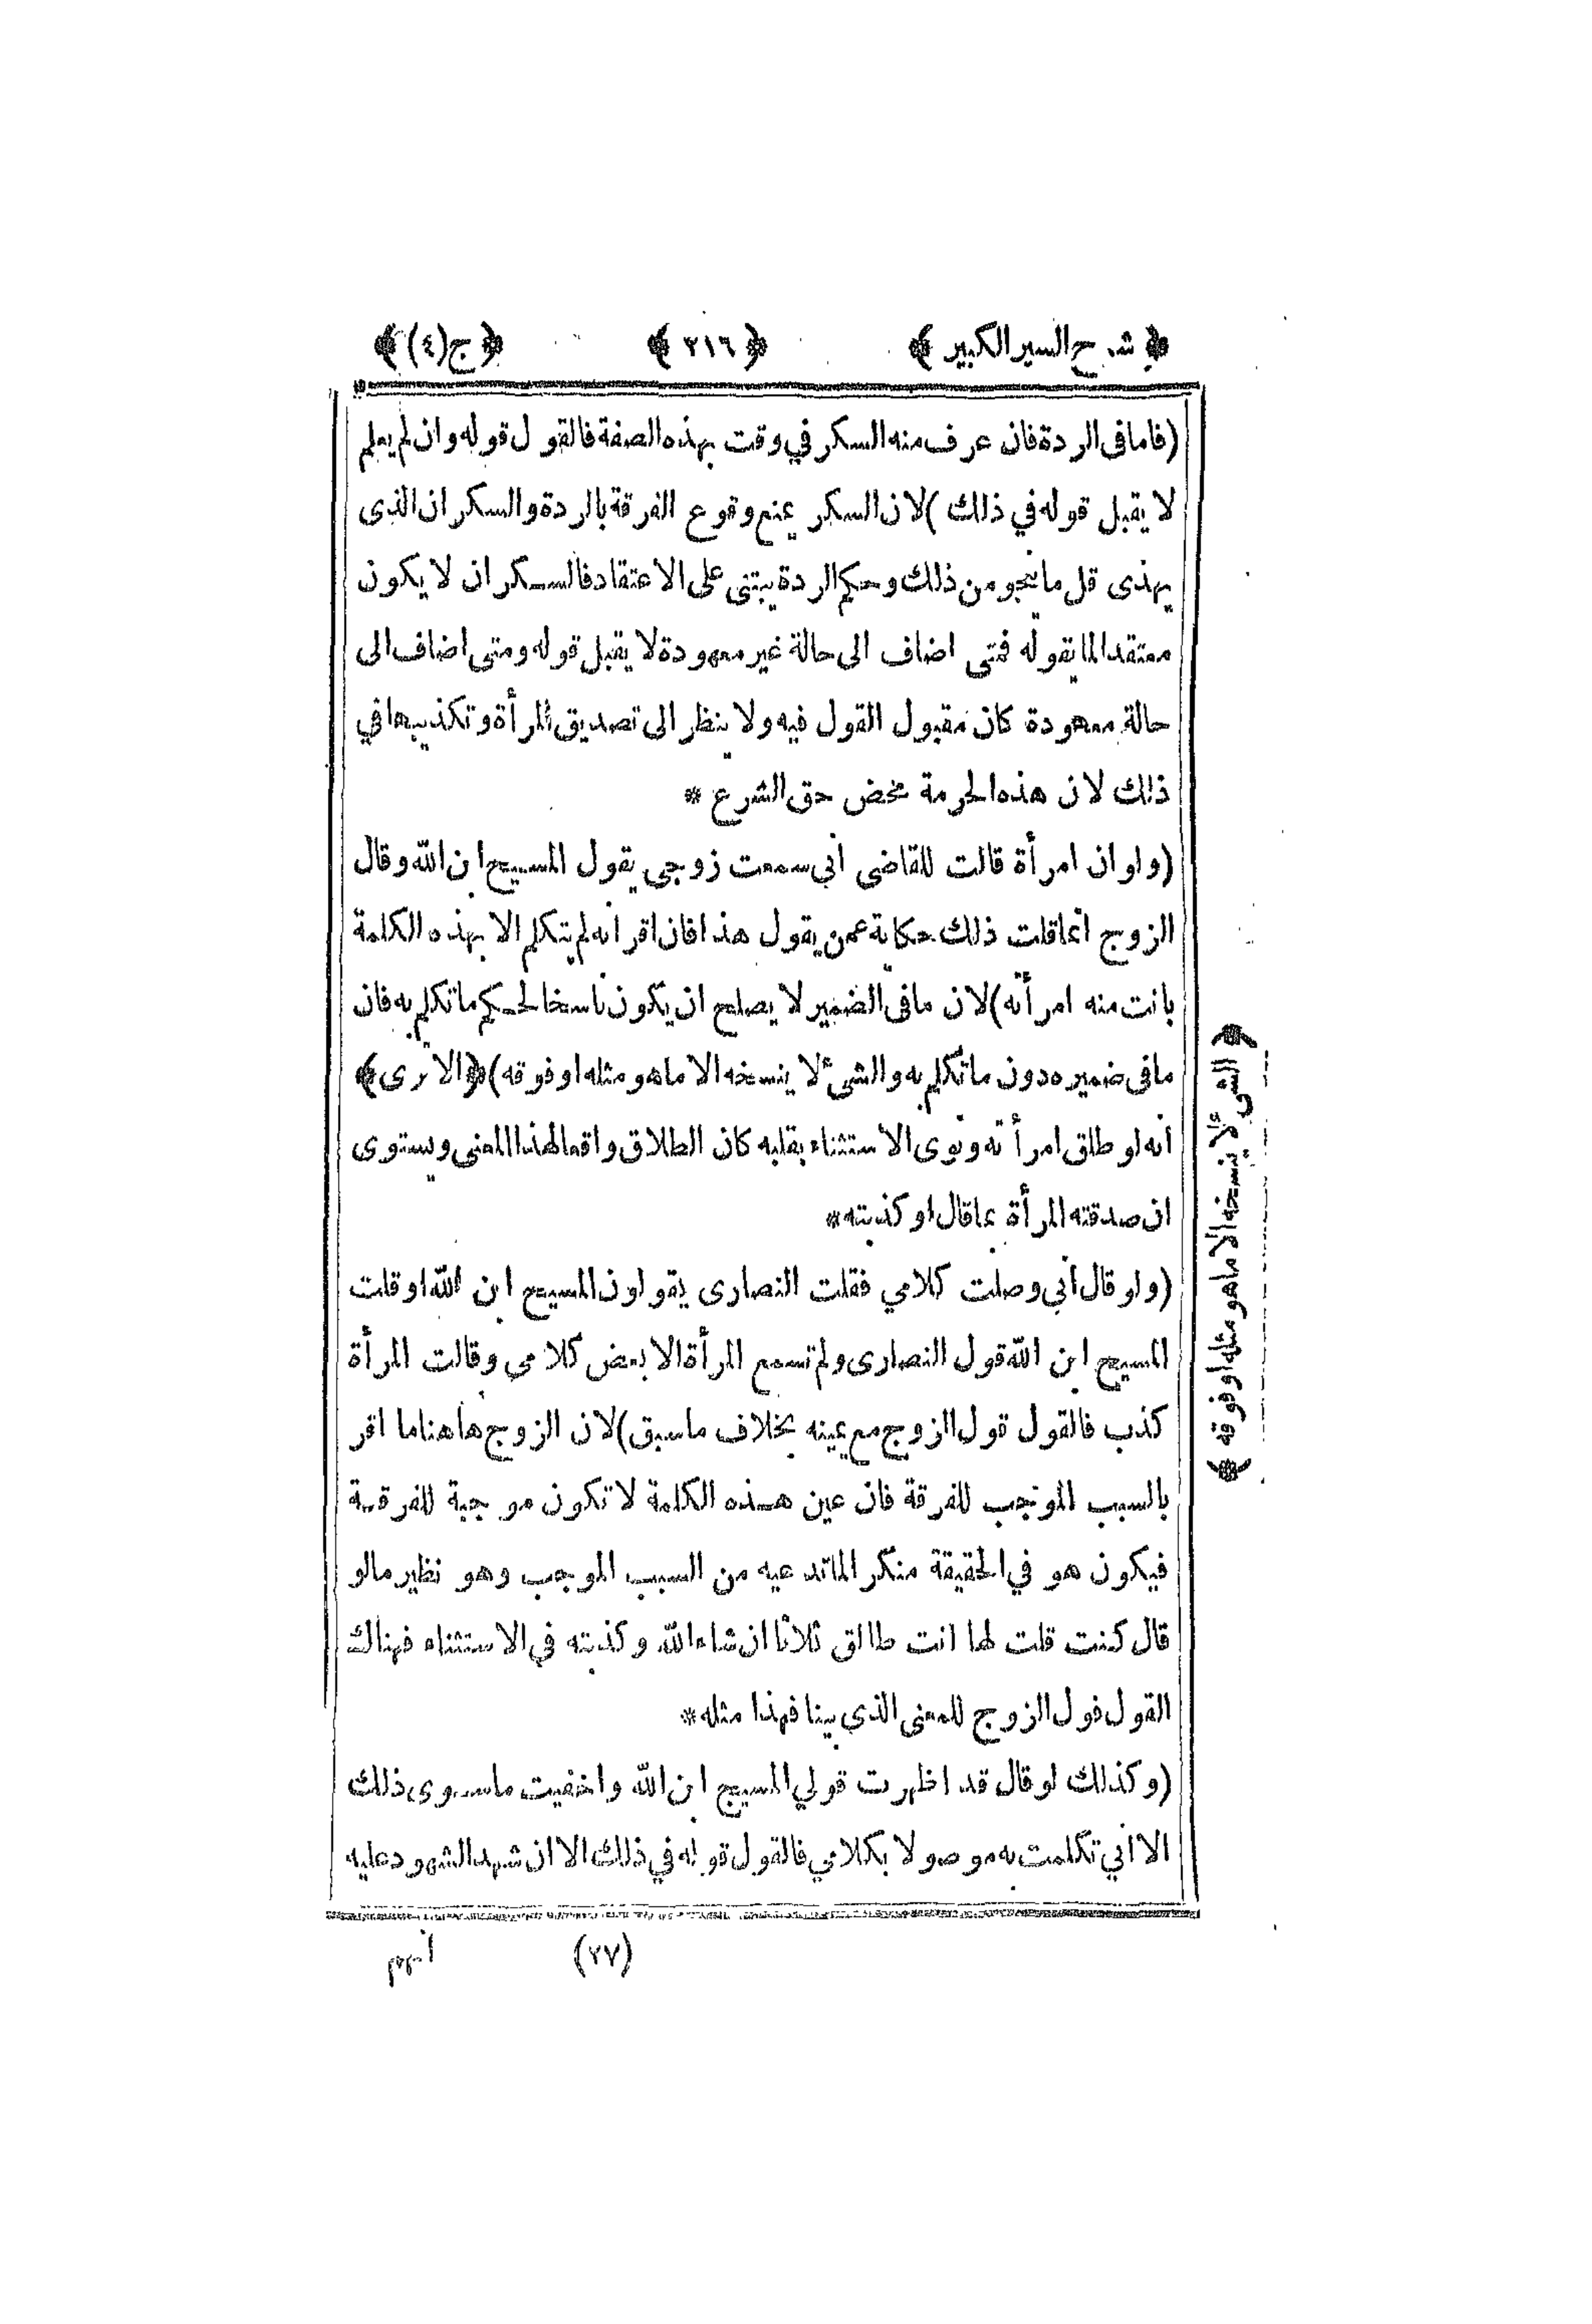 ﴿ شرح السير الكبير ﴾ ﴿ ٢١٦ ﴾ ﴿ ج(٤) ﴾
(فاما فى الردة فان عرف منه السكر في وقت بهذه الصفة فالقول قوله وان لم يعلم
لا يقبل قوله في ذلك )لان السكر يمنع وقوع الفرقة بالردة والسكران الذى
يهذى قل ما ينجو من ذلك وحكم الردة يبتنى على الاعتقاد فالسكران لا يكون
معتقدا لما يقوله فمتى اضاف الى حالة غير معهودة لا يقبل قوله ومتى اضاف الى
حالة معهودة كان مقبول القول فيه ولا ينظر الى تصديق المرأة وتكذيبها في
ذلك لان هذه الحرمة محض حق الشرع *
(ولو ان امرأة قالت للقاضى انى سمعت زوجى يقول المسيح ابن الله وقال
الزوج انما قلت ذلك حكاية عمن يقول هذا فان اقر انه لم يتكلم الا بهذه الكلمة
بانت منه امرأته)لان ما فى الضمير لا يصلح ان يكون ناسخا لحكم ما تكلم به فان
ما فى ضميره دون ما تكلم به والشىء لا ينسخه الا ما هو مثله او فوقه)﴿الا ترى﴾
انه لو طلق امرأته ونوى الاستثناء بقلبه كان الطلاق واقعا لهذا المعنى ويستوى
ان صدقته المرأة بما قال او كذبته*
(ولو قال انى وصلت كلامي فقلت النصارى يقولون المسيح ابن الله او قلت
المسيح ابن الله قول النصارى ولم تسمع المرأة الا بعض كلامى وقالت المرأة
كذب فالقول قول الزوج مع يمينه بخلاف ما سبق)لان الزوج هاهنا ما اقر
بالسبب الموجب للفرقة فان عين هذه الكلمة لا تكون موجبة للفرقة
فيكون هو في الحقيقة منكرا لما تدعيه من السبب الموجب وهو نظير ما لو
قال كنت قلت لها انت طالق ثلاثا ان شاء الله وكذبته في الاستثناء فهناك
القول قول الزوج للمعنى الذي بينا فهذا مثله*
(وكذلك لو قال قد اظهرت قولي المسيح ابن الله واخفيت ما سوى ذلك
الا انى تكلمت به موصولا بكلامي فالقول قوله في ذلك الا ان شهد الشهود عليه
﴿ الشىء لا ينسخه الا ما هو مثله او فوقه ﴾
(٢٧) انهم